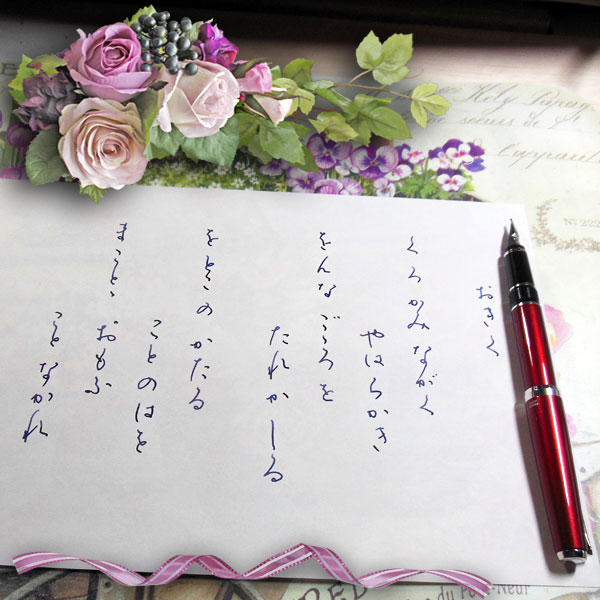 おきく
くろかみながく
やはらかき
をんなごころを
たれかしる
をとこのかたる
ことのはを
まことゝ
おもふ
ことなかれ
Nº 222
du Pont-Neuf